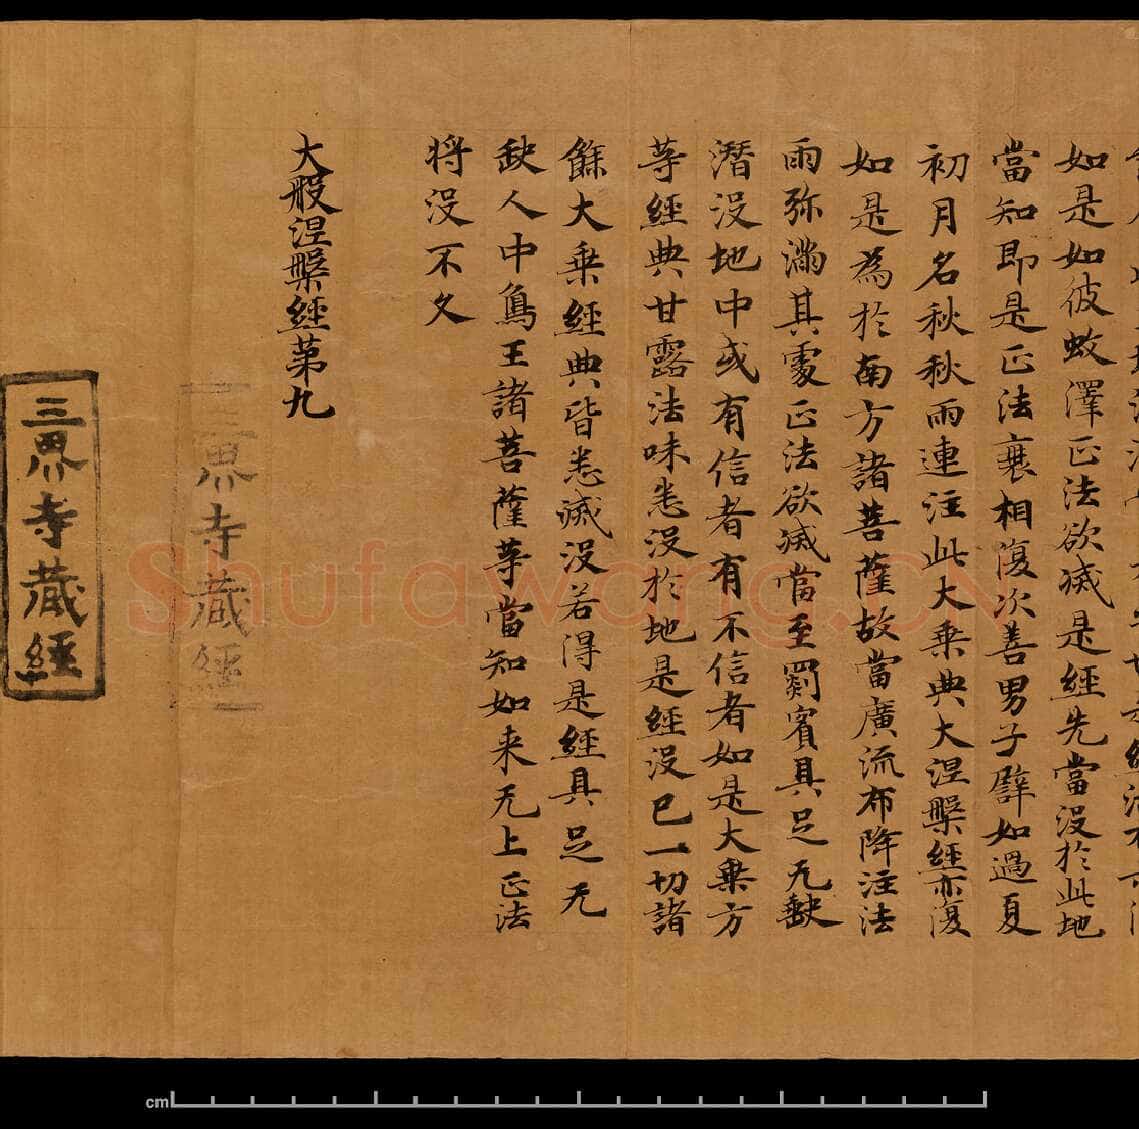 如是如彼蚊澤正法欲滅是經先當没於此地
當知即是正法衰相復次善男子譬如過夏
初月名秋秋雨連注此大乗典大涅槃經亦復
如是為於南方諸菩薩故當廣流布降注法
雨弥滿其處正法欲滅當至罽賓具足无缺
潛没地中或有信者有不信者如是大乗方
等經典甘露法味悉没於地是經没已一切諸
餘大乗經典皆悉滅没若得是經具足无
缺人中鳥王諸菩薩等當知如来无上正法
将没不久
大般涅槃經第九
三界寺藏經
三界寺藏經
Shufawang.CN
cm